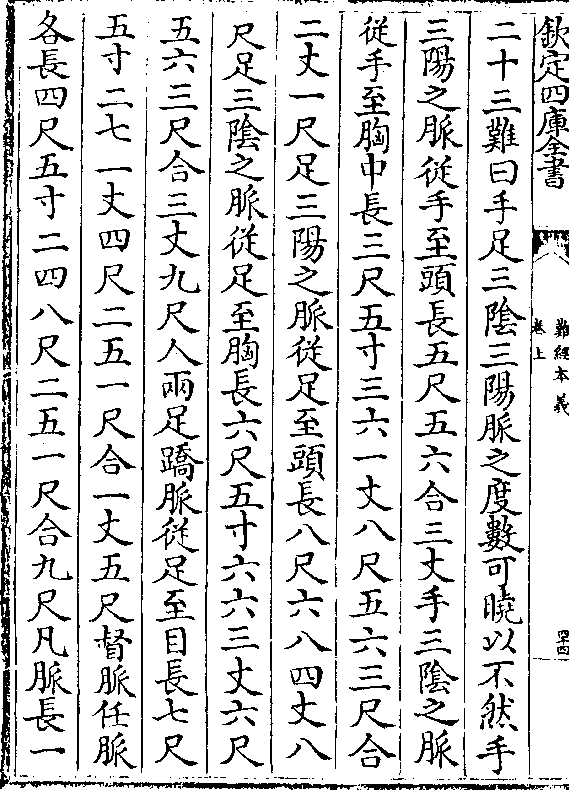 欽定四庫全書
難經本義
卷上
四四
二十三難曰手足三陰三陽脈之度數可曉以不然手
三陽之脈從手至頭長五尺五六合三丈手三陰之脈
從手至胸中長三尺五寸三六一丈八尺五六三尺合
二丈一尺足三陽之脈從足至頭長八尺六八四丈八
尺足三陰之脈從足至胸長六尺五寸六六三丈六尺
五六三尺合三丈九尺人兩足蹻脈從足至目長七尺
五寸二七一丈四尺二五一尺合一丈五尺督脈任脈
各長四尺五寸二四八尺二五一尺合九尺凡脈長一